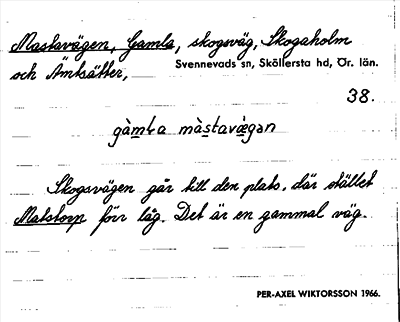 Mastavägen, Gamla, skogsväg, Skogaholm
och Ämtsätter, Svennevads sn, Sköllersta hd, Ör. län.
38.
gàmla màstavägan
Skogsvägen går till den plats, där stället
Matstorp förr låg. Det är en gammal väg.
PER-AXEL WIKTORSSON 1966.